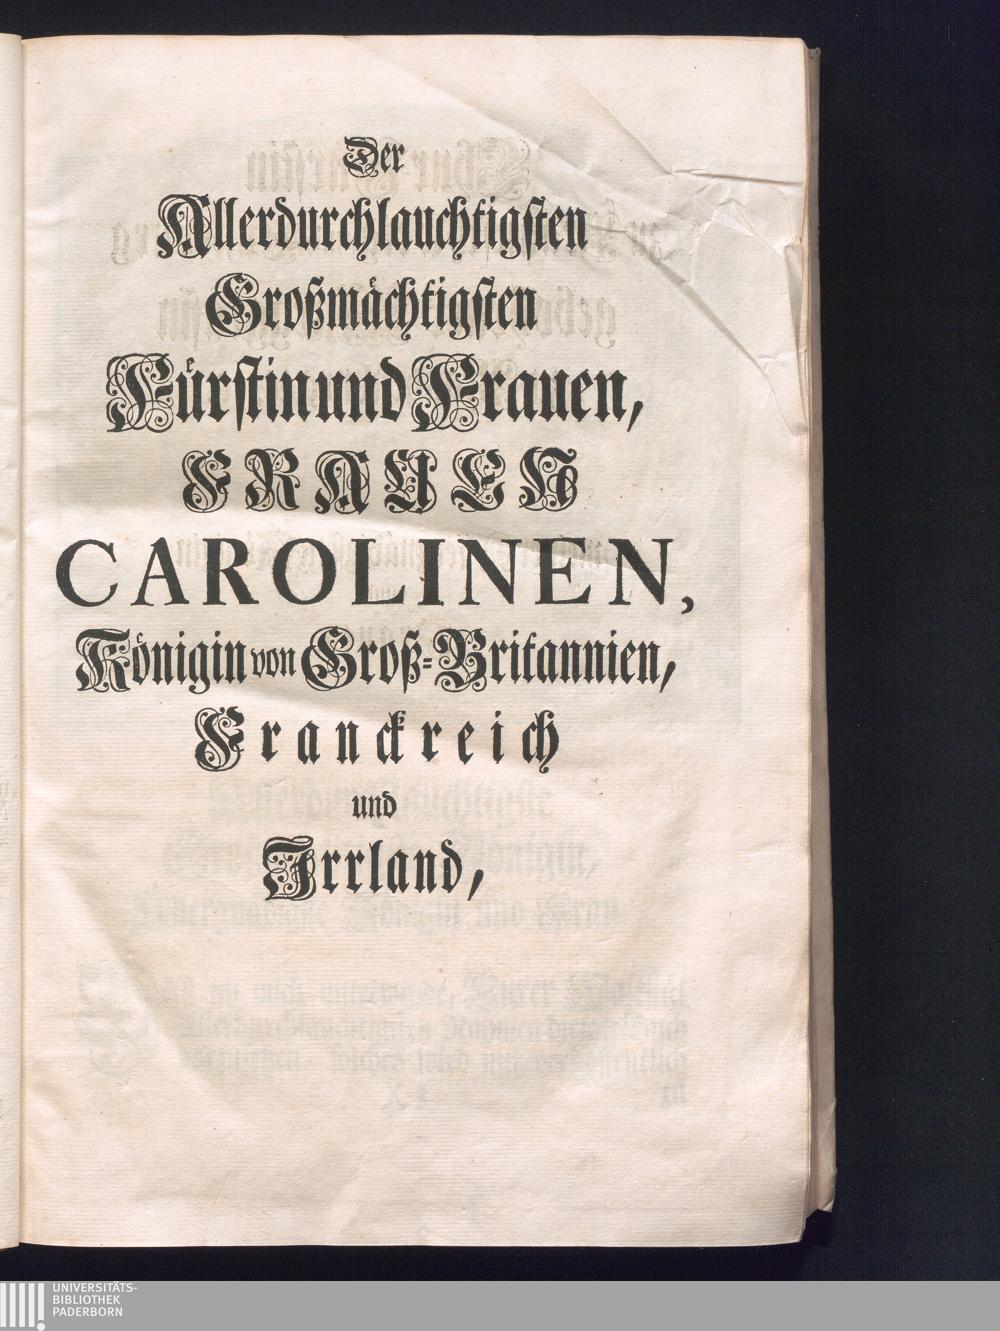 Der
Allerdurchlauchtigsten
Großmächtigsten
Fürstin und Frauen,
FRAUEN
CAROLINEN,
Königin von Groß-Britannien,
Franckreich
und
Irrland,
UNIVERSITÄTS-
BIBLIOTHEK
PADERBORN